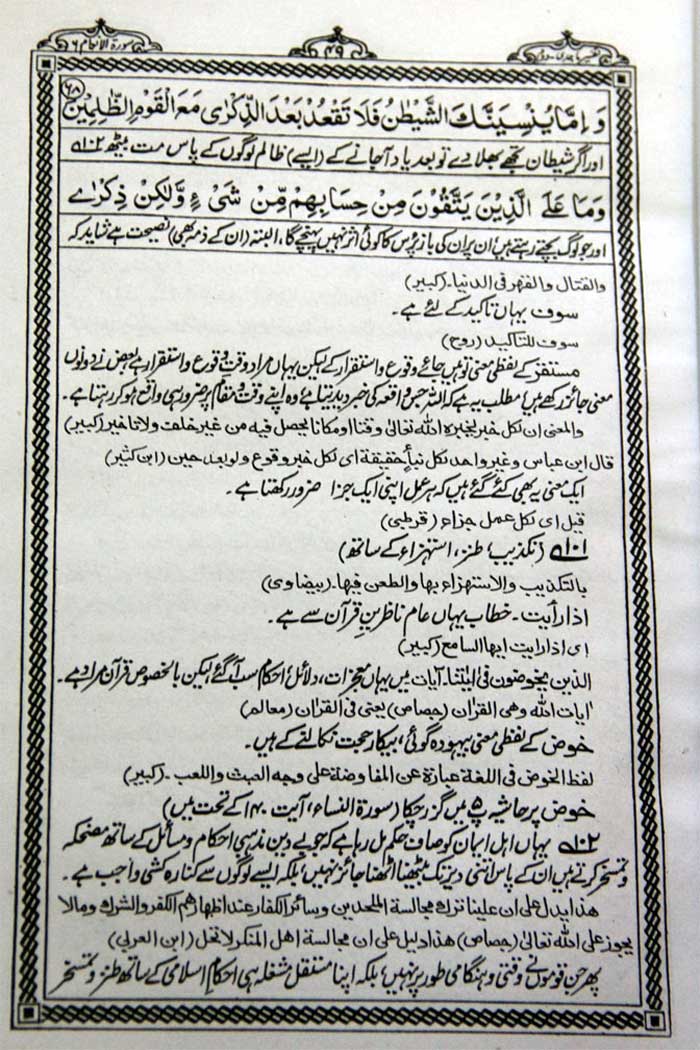 سورة الانعام ٦
٤٩
تفسیر ماجدی - دوم
وَاِمَّا يُنْسِيَنَّكَ الشَّيْطٰنُ فَلَا تَقْعُدْ بَعْدَ الذِّكْرٰى مَعَ الْقَوْمِ الظّٰلِمِيْنَ ۶۸
اور اگر شیطان تجھے بھلا دے تو بعد یاد آجانے کے (ایسے) ظالم لوگوں کے پاس مت بیٹھ ۱۰۲
وَمَا عَلَى الَّذِيْنَ يَتَّقُوْنَ مِنْ حِسَابِهِمْ مِّنْ شَىْءٍ وَّلٰكِنْ ذِكْرٰى
اور جو لوگ بچتے رہتے ہیں ان پر ان کی باز پرس کا کوئی اثر نہیں پہنچے گا، البتہ (ان کے ذمہ بھی) نصیحت ہے شاید کہ
والقتال والقهر فی الدنیا۔ (کبیر)
سوف یہاں تاکید کے لئے ہے۔
سوف للتاکید (روح)
مستقر کے لفظی معنی تو ہیں جائے وقوع و استقرار کے لیکن یہاں مراد وقت وقوع و استقرار ہے بعض نے دونوں
معنی جائز رکھے ہیں مطلب یہ ہے کہ اللہ جس واقعہ کی خبر دیدیتا ہے وہ اپنے وقت و مقام پر ضرور ہی واقع ہو کر رہتا ہے۔
والمعنی ان لکل خبر یخبرہ اللہ تعالیٰ وقتا او مکانا یحصل فیه من غیر خلف ولا تاخیر (کبیر)
قال ابن عباس وغیر واحد لکل نبأ حقیقة ای لکل خبر وقوع ولو بعد حین (ابن کثیر)
ایک معنی یہ بھی کئے گئے ہیں کہ ہر عمل اپنی ایک جزا ضرور رکھتا ہے۔
قیل ای لکل عمل جزاء (قرطبی)
۱۰۱ (تکذیب، طنز، استہزاء کے ساتھ)
بالتکذیب والاستهزاء بها والطعن فیها۔ (بیضاوی)
اذا رأیت۔ خطاب یہاں عام ناظرینِ قرآن سے ہے۔
ای اذا رایت ایها السامع (کبیر)
الذین یخوضون فی اٰیٰتنا۔ آیات میں یہاں معجزات، دلائل، احکام سب آگئے لیکن بالخصوص قرآن مراد ہے۔
آیات اللہ وهی القرآن (جصاص) یعنی فی القرآن (معالم)
خوض کے لفظی معنی بیہودہ گوئی، بیکار حجت نکالنے کے ہیں۔
لفظ الخوض فی اللغة عبارة عن المفاوضة علی وجه العبث واللعب۔ (کبیر)
خوض پر حاشیہ پ ۵ میں گزر چکا (سورة النساء، آیت ۱۴۰ کے تحت میں)
۱۰۲ یہاں اہل ایمان کو صاف حکم مل رہا ہے کہ جو بے دین مذہبی احکام و مسائل کے ساتھ مضحکہ
و تمسخر کرتے ہیں ان کے پاس اتنی دیر تک بیٹھنا اٹھنا جائز نہیں، بلکہ ایسے لوگوں سے کنارہ کشی واجب ہے۔
هذا یدل علی ان علینا ترك مجالسة الملحدین وسائر الکفار عند اظهارهم الکفر والشرك ومالا
یجوز علی اللہ تعالیٰ (جصاص) هذا دلیل علی ان مجالسة اهل المنکر لا تحل (ابن العربی)
پھر جن قوموں نے وقتی و ہنگامی طور پر نہیں، بلکہ اپنا مستقل مشغلہ ہی احکام اسلامی کے ساتھ طنز و تمسخر